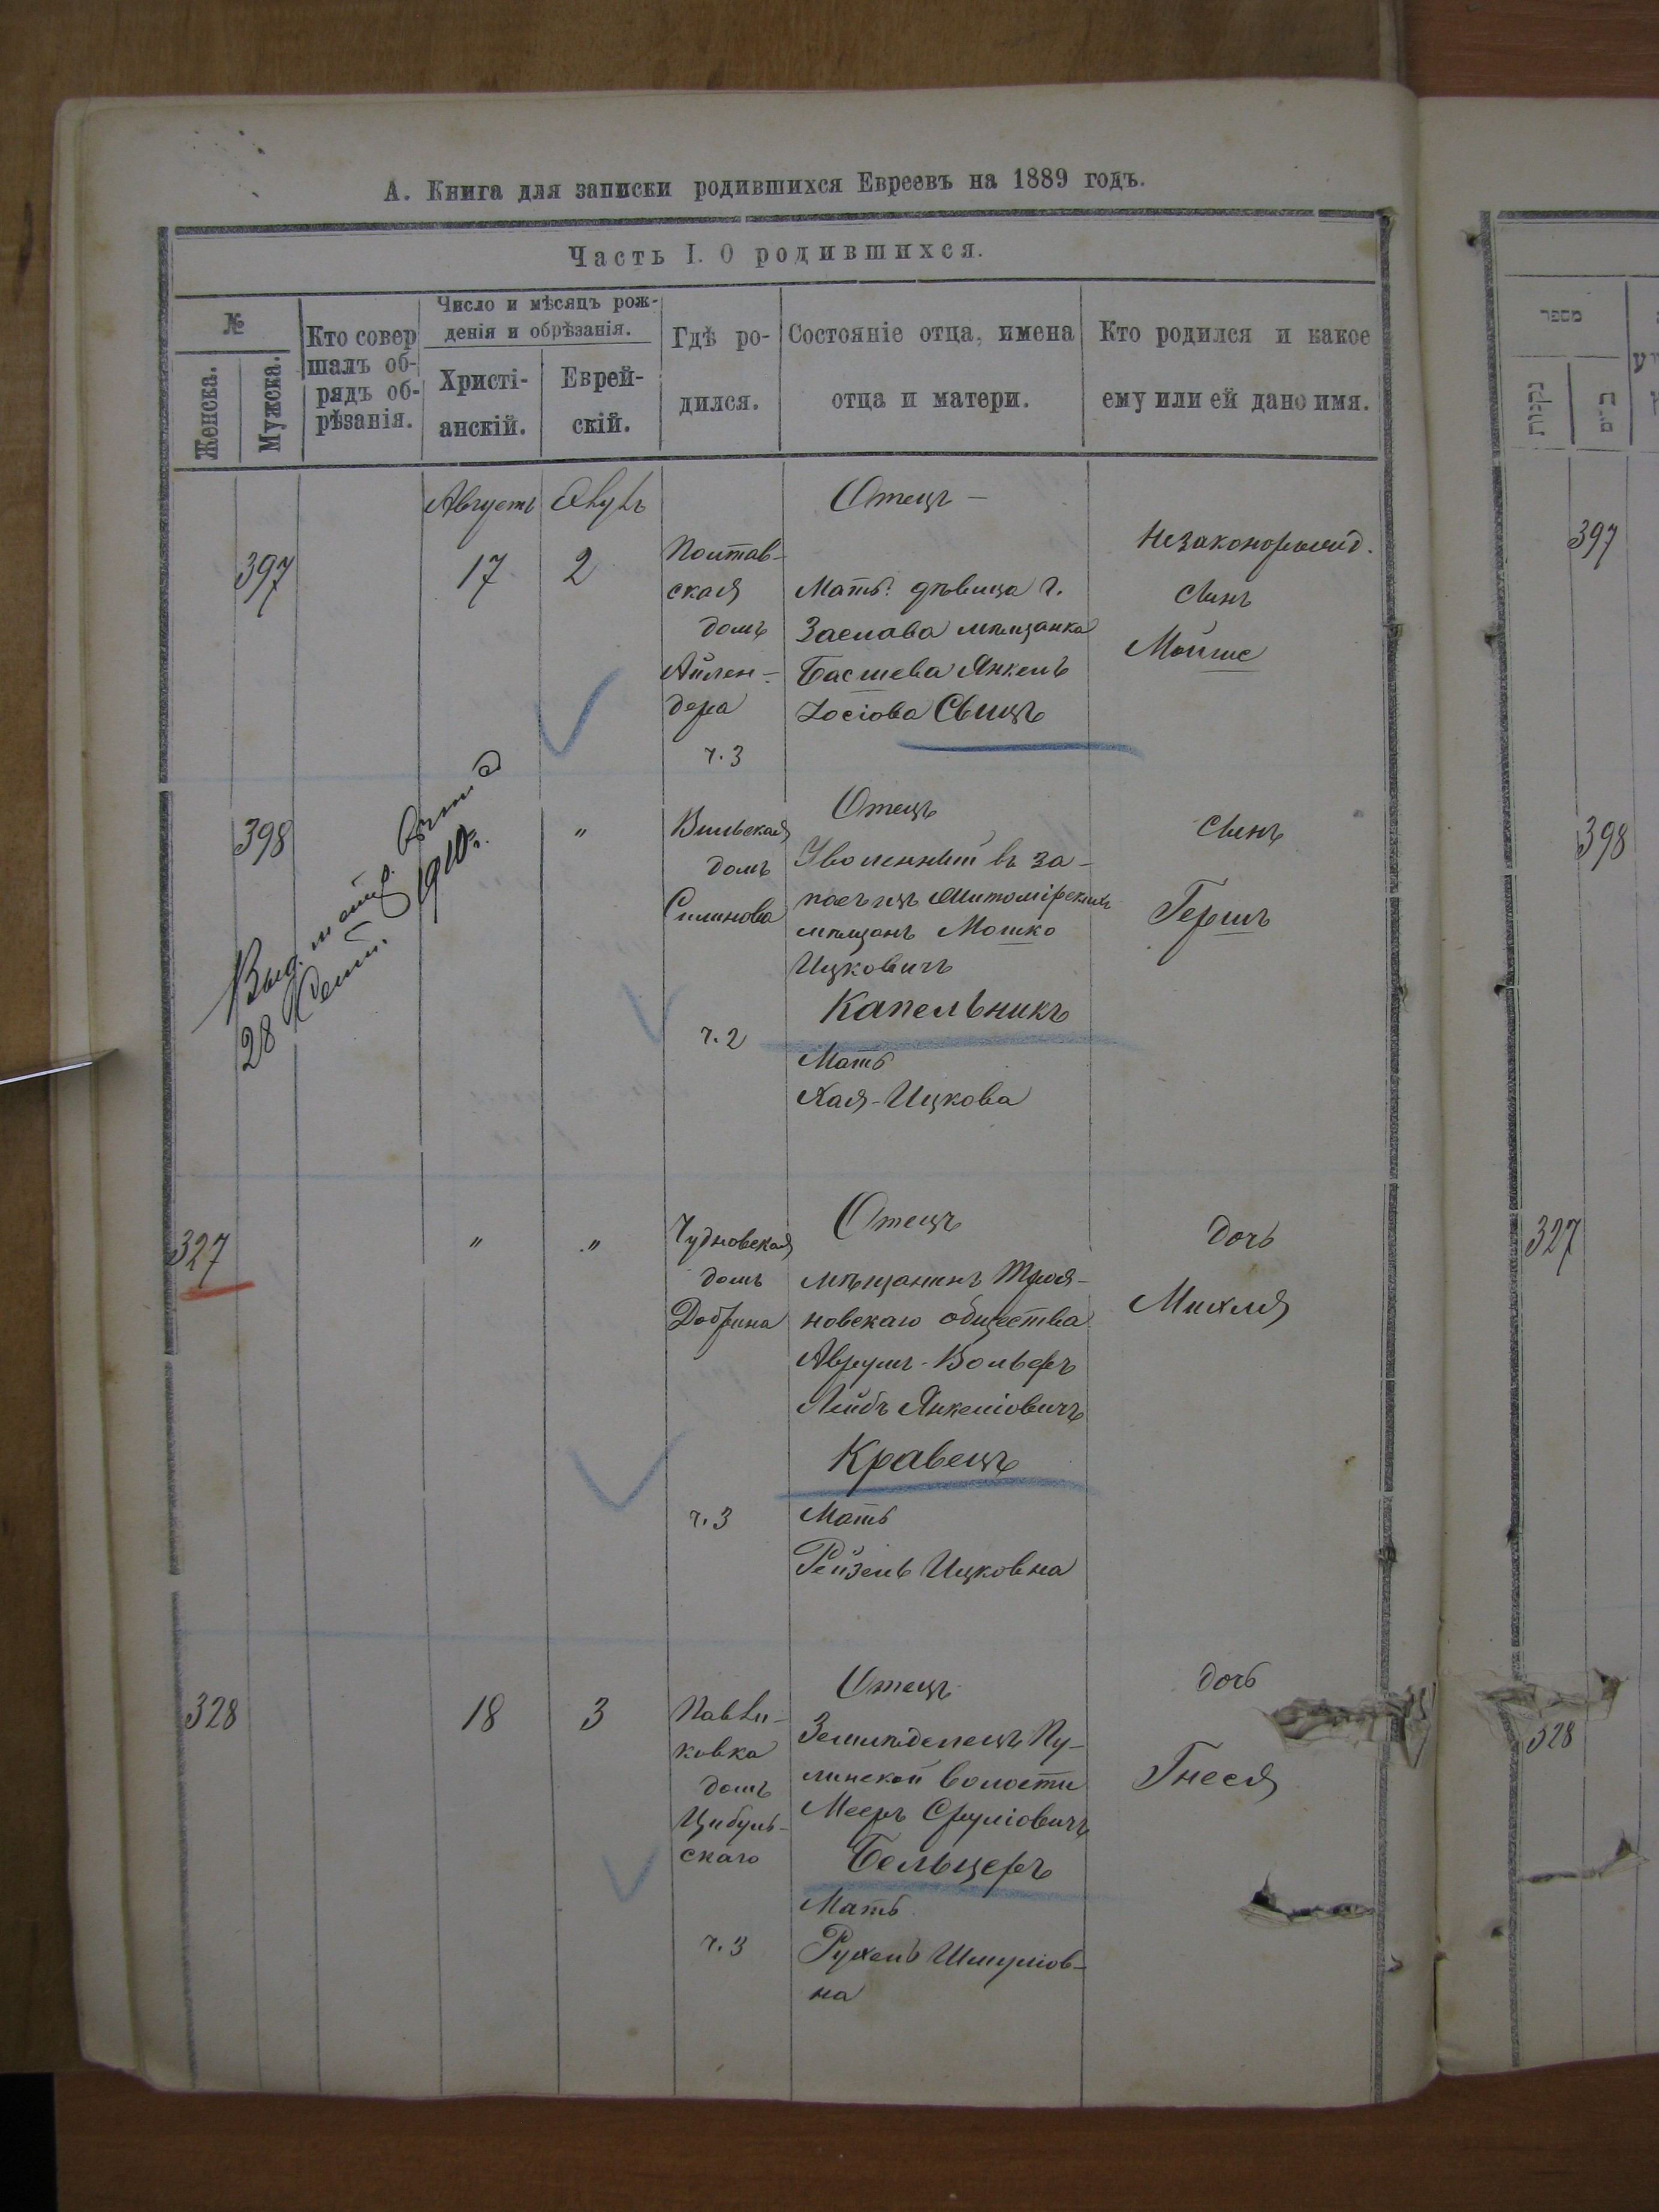 А. Книга для записки родившихся Евреевъ на 1889 годъ.
Часть I. О родившихся.
№
Женска.
Мужска.
Кто совер
шалъ об-
рядъ об-
рѣзанія.
Число и мѣсяцъ рож-
денія и обрѣзанія.
Христі-
анскій.
Еврей-
скій.
Гдѣ ро-
дился.
Состояніе отца, имена
отца и матери.
Кто родился и какое
ему или ей дано имя.
Августъ
397
17
2
Полтав-
ская
домъ
Айлен-
дера
ч. 3
Отецъ –
Мать: дѣвица г.
Заслава мѣщанка
Басшева Янкель
Іосіова Свицъ
Незаконорожд.
Сынъ
Мойше
398
28 1910 г.
"
Вильская
домъ
ч. 2
Отецъ
Уволенный въ за-
пасъ изъ Житомірскихъ
мѣщанъ Мошко
Ицковичъ
Капельникъ
Мать
Хая-Ицкова
Сынъ
Гершъ
327
"
"
Чудновская
домъ
Добрина
ч. 3
Отецъ
мѣщанинъ Троя-
новскаго общества
Аврумъ-Вольфъ
Лейбъ Янкеліовичъ
Кравецъ
Мать
Рейзель Ицковна
дочь
Михля
328
18
3
Павли-
ковка
домъ
Цибуль-
скаго
ч. 3
Отецъ
Земледелецъ Пу-
линской волости
Мееръ Сруліовичъ
Бельцеръ
Мать
Рухель Шмуліов-
на
дочь
Гнеся
מספר
נקבות
397
398
327
328